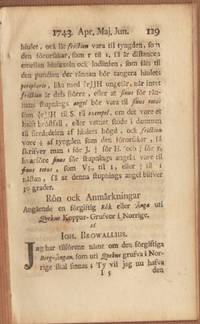 1743. Apr. Maj. Jun. 129
hiulet, och lät friction vara til tyngden, som
den förorsakar, som r til 1, få är distancen
emellan hiulaxeln och lodlinien, som fäls til
den puncten der rännan bör tangera hiulets
peripherie, lika med
friction är dess större, eller at sinus för rän-
nans stupnings angel bör vara til sinus totus
som til S. til exempel, om det vore et
halft bröstfall, eller vattnet stode i dammen
til fierdedelen af hiulets högd, och friction
vore ¼ af tyngden som den förorsakar, så
skrifver man 1 för J, ½ för H. och ¼ för r,
hvarföre sinus för stupnings angeln vore til
sinus totus, som til 1 eller 1 til
nästan, så at denna stupnings angel blifver
30 grader.
Rön och Anmärkningar
Angående en förgiftig Rök eller Ånga uti
Quekne Koppar-Grufvor i Norrige.
af
JOH. BROWALLIUS.
Jag har tilförene nämt om den förgiftiga
Berg-Ångan, som uti Quekne grufva i Nor-
rige skal finnas; Ty vil jag nu hafva
I 5 den